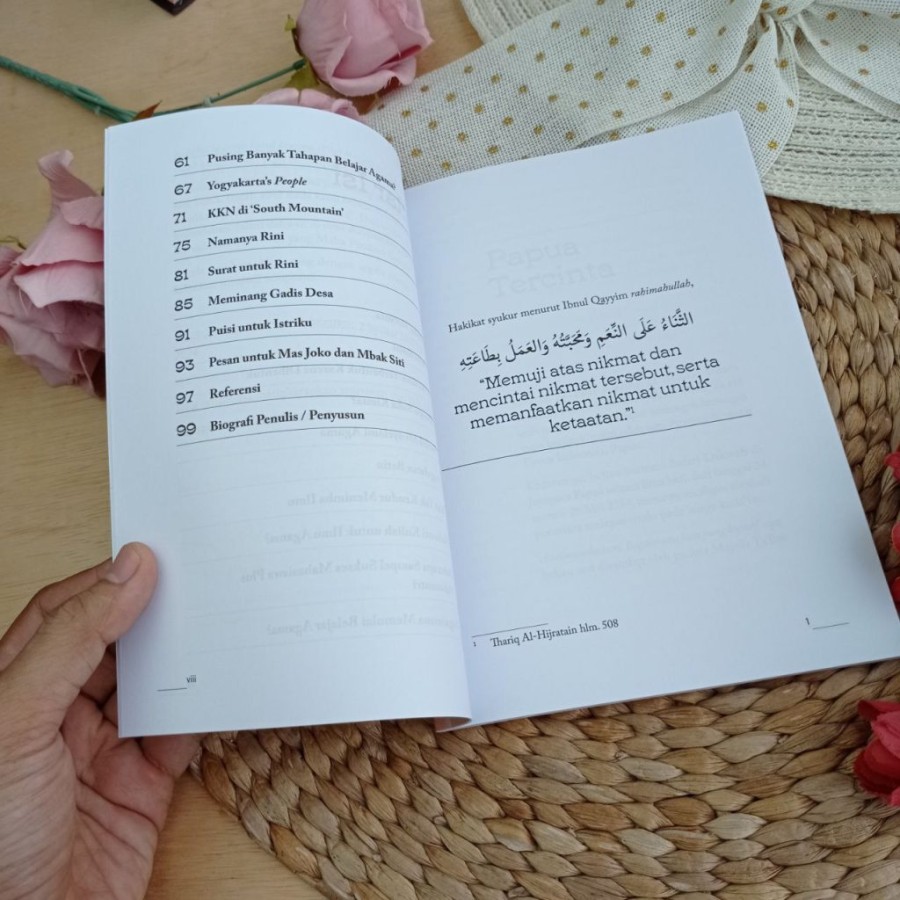 61 Pusing Banyak Tahapan Belajar Agama?
67 Yogyakarta's People
71 KKN di 'South Mountain'
75 Namanya Rini
81 Surat untuk Rini
85 Meminang Gadis Desa
91 Puisi untuk Istriku
93 Pesan untuk Mas Joko dan Mbak Siti
97 Referensi
99 Biografi Penulis / Penyusun
viii
Papua
Tercinta
Hakikat syukur menurut Ibnul Qayyim rahimahullah,
الثَّنَاءُ عَلَى النِّعَمِ وَمَحَبَّتُهُ وَالعَمَلُ بِطَاعَتِهِ
“Memuji atas nikmat dan
mencintai nikmat tersebut, serta
memanfaatkan nikmat untuk
ketaatan.”1
1 Thariq Al-Hijratain hlm. 508
1